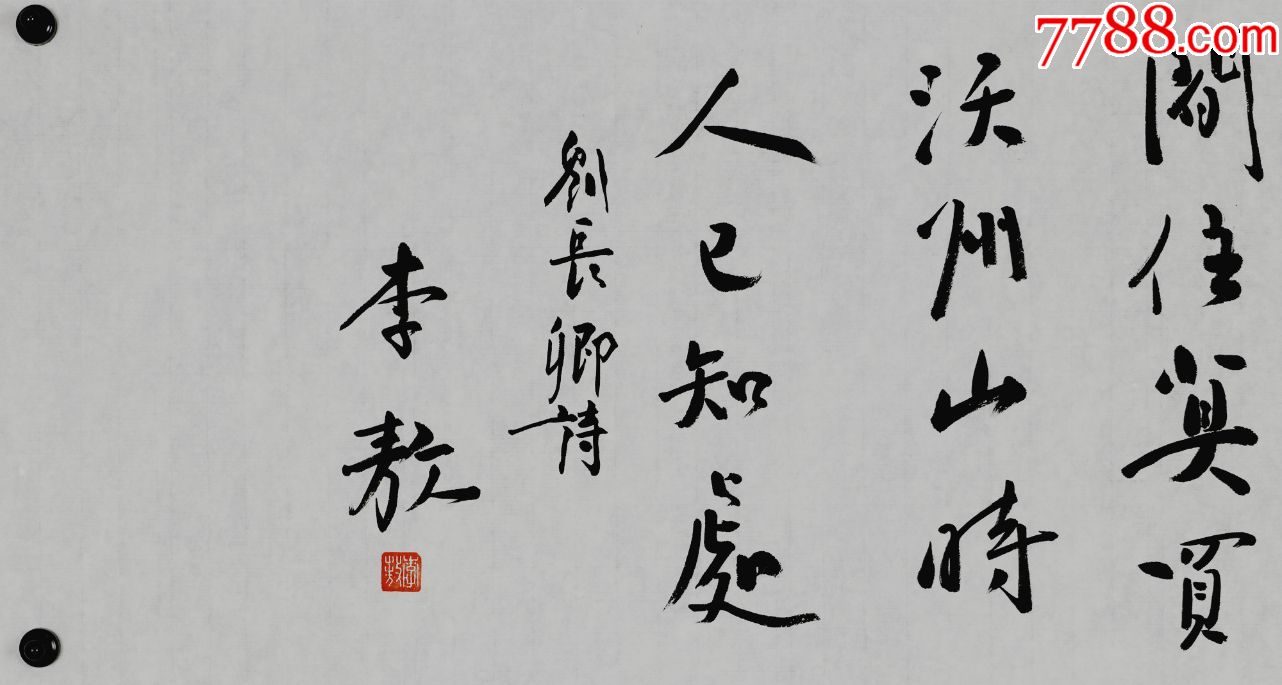 7788.com
間住莫買
沃州山時
人已知處
劉長卿詩
李敖
李敖